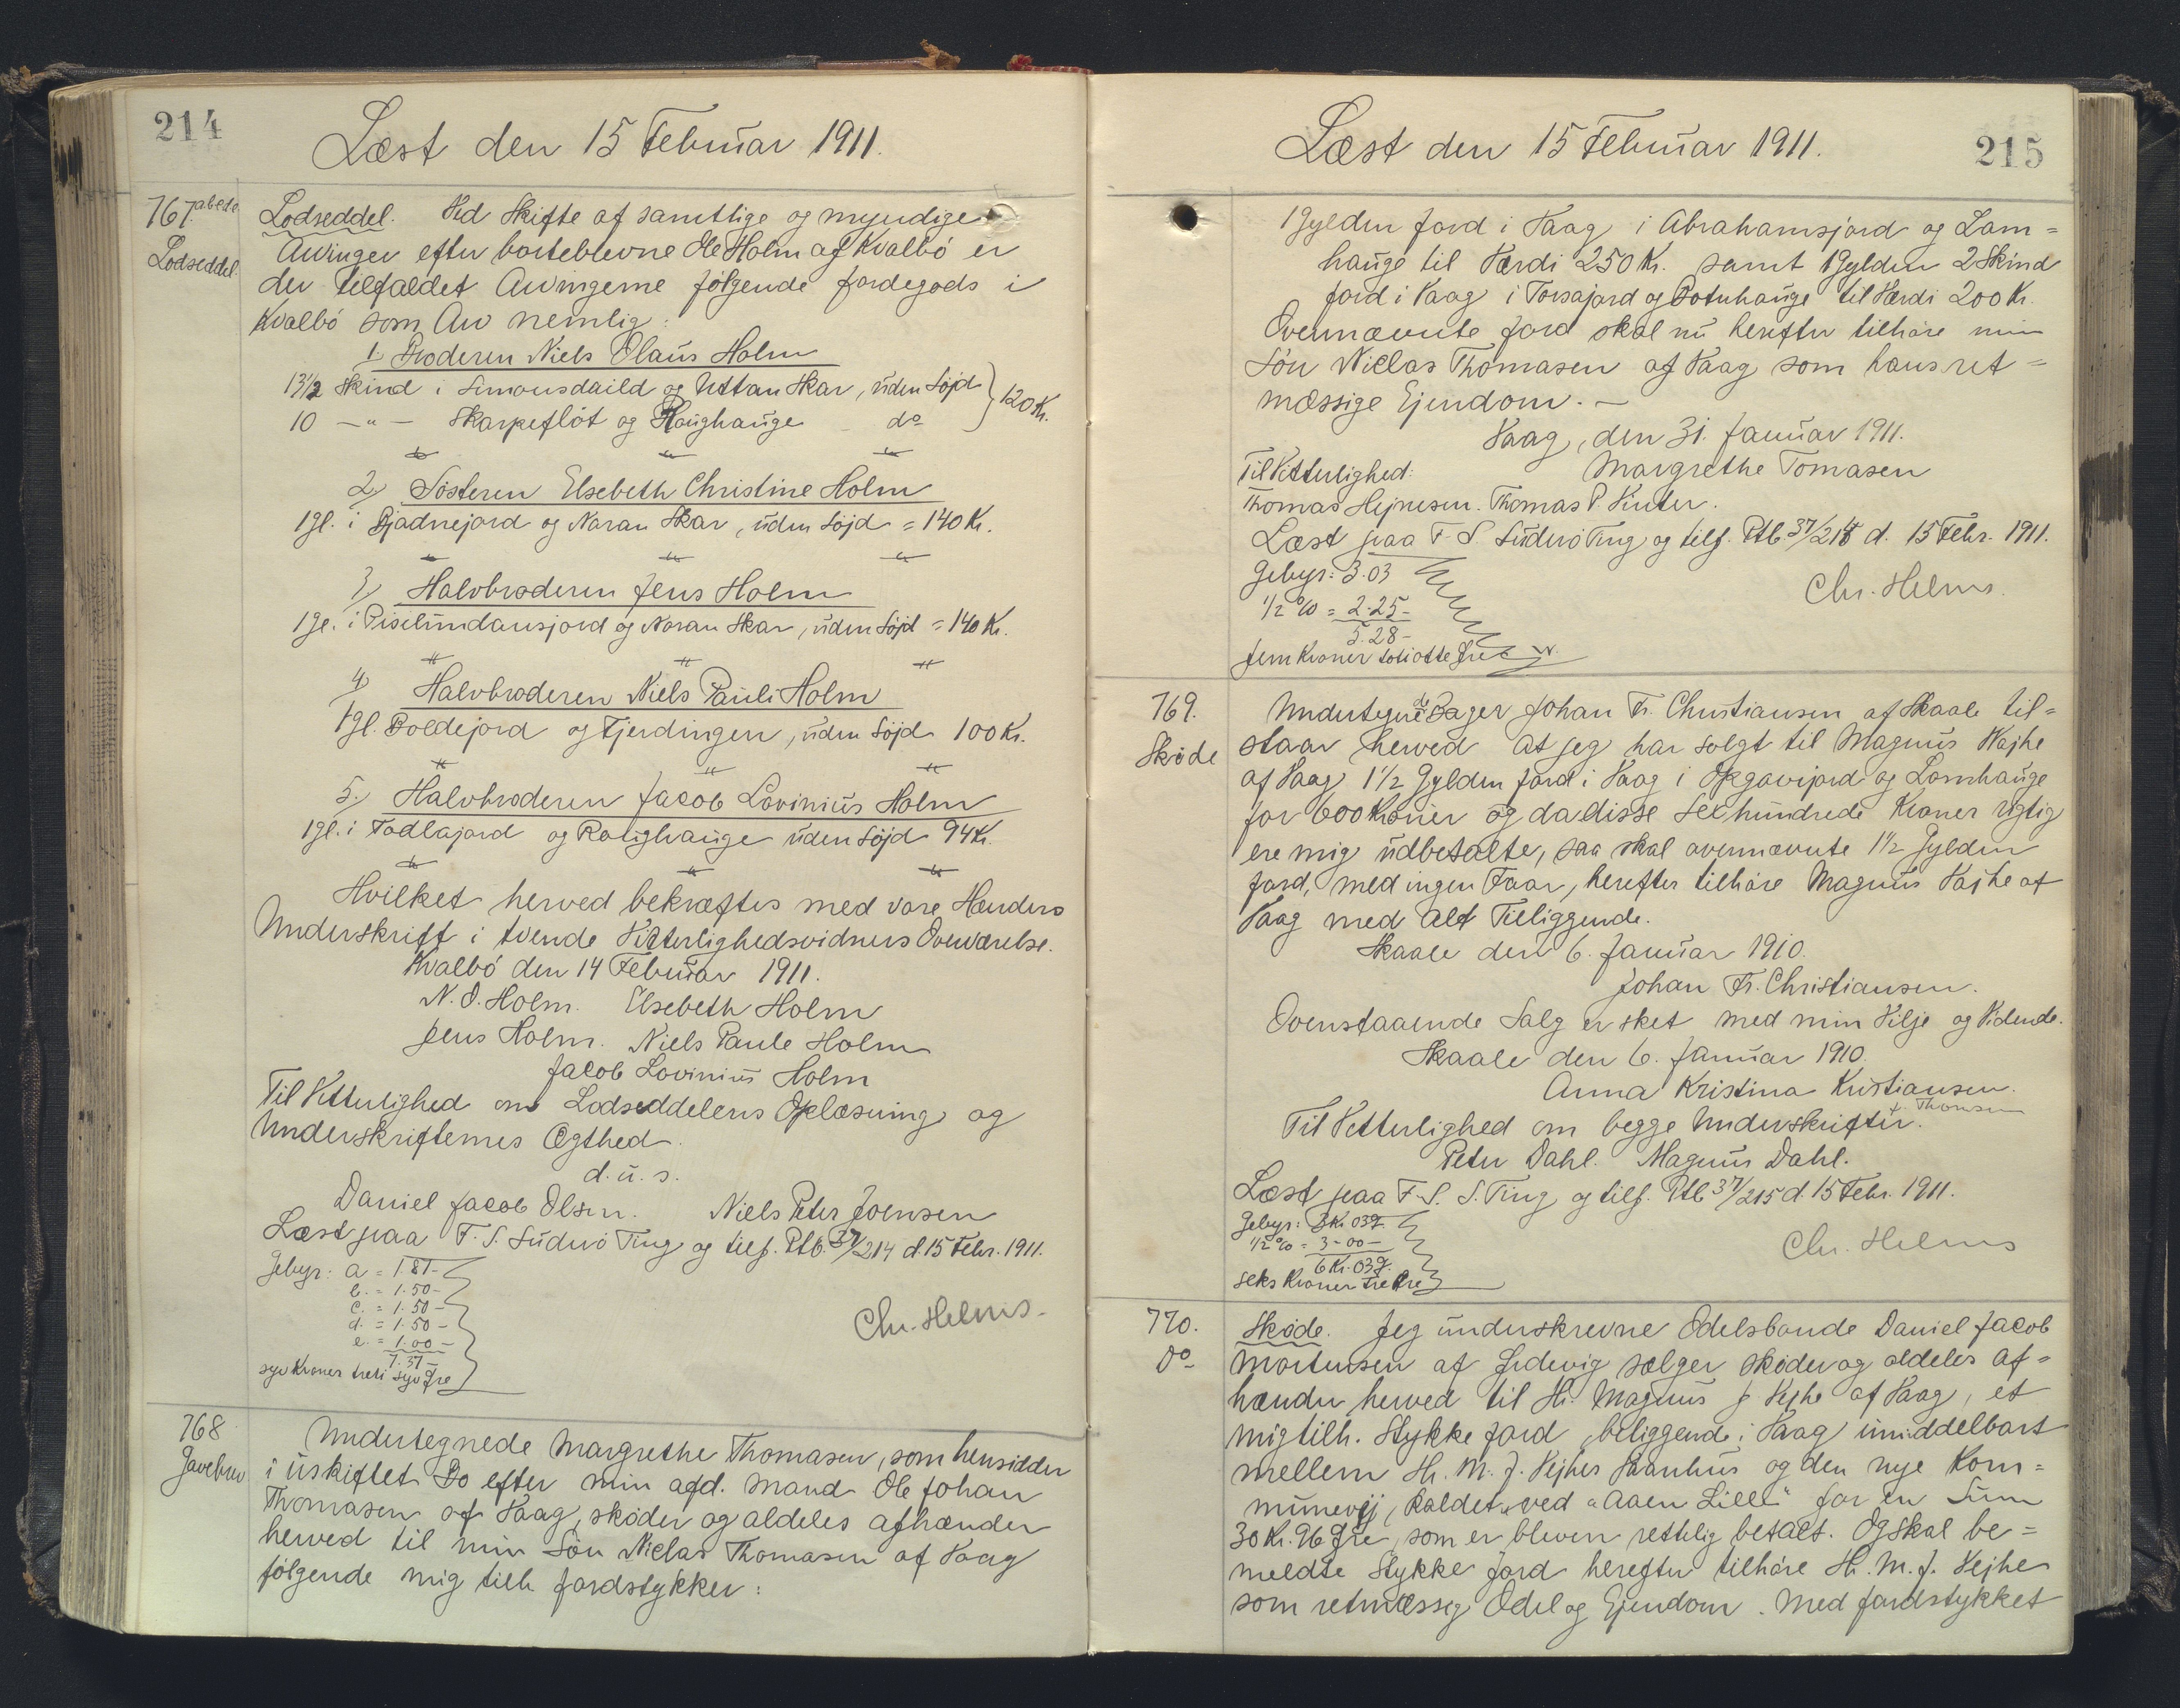 214
Læst den 15 Februar 1911.
767 abcde
Lodseddel.
Lodseddel. Ved Skifte af samtlige og myndige
Arvinger efter borteblevne Ole Holm af Kvalbö er
der tilfaldet Arvingerne følgende Jordegods i
Kvalbö som Arv nemlig:
1, Broderen Niels Olaus Holm
13½ Skind i Simonsdaild og Uttan Skar, uden Söjd } 120 Kr.
10 –"– Skarpeflöt og Roughauge do
2, Sösteren Elsebeth Christine Holm
1 gl. i Bjadnejord og Noran Skar, uden Söjd = 140 Kr.
3, Halvbroderen Jens Holm
1 gl. i Piselundansjord og Noran Skar, uden Söjd = 140 Kr.
4, Halvbroderen Niels Pauli Holm
1 gl. Boldejord og Fjerdingen, uden Söjd 100 Kr.
5., Halvbroderen Jacob Lovinius Holm
1 gl. i Todlajord og Roughauge uden Söjd 94 Kr.
Hvilket herved bekræftes med vore Hænders
Underskrift i tvende Vitterlighedsvidners Overværelse.
Kvalbö den 14 Februar 1911.
N. O. Holm. Elsebeth Holm
Jens Holm. Niels Paule Holm
Jacob Lovinius Holm
Til Vitterlighed om Lodseddelens Oplæsning og
Underskrifternes Ægthed.
d. u. s.
Daniel Jacob Olsen. Niels Peter Joensen
Læst paa F. S. Suderö Ting og tilf. Ptb. 37/214 d. 15 Febr. 1911.
Gebyr: a = 1.81 -
b. = 1.50 -
c. = 1.50 -
d. = 1.50 -
e. = 1.00 -
7.31 -
syv Kroner treti syv Øre
Chr. Helms.
768
Gavebrev
Undertegnede Margrethe Thomasen, som hensidder
i uskiftet Bo efter min afd. Mand Ole Johan
Thomasen af Vaag, skøder og aldeles afhænder
herved til min Sön Niclas Thomasen af Vaag
følgende mig tilh. Jordstykker:
215
Læst den 15 Februar 1911.
1 Gylden Jord i Vaag i Abrahamsjord og Lam=
hauge til Værdi 250 Kr. samt 1 Gylden 2 Skind
Jord i Vaag i Torsajord og Botnhauge til Værdi 200 Kr.
Overnævnte Jord skal nu herefter tilhöre min
Sön Niclas Thomasen af Vaag som hans ret=
mæssige Ejendom. –
Vaag, den 31. Januar 1911.
Til Vitterlighed: Margrethe Tomasen
Thomas Hejnesen. Thomas P. Vinter.
Læst paa F. S. Suderö Ting og tilf. Ptb 37/215 d. 15 Febr. 1911.
Gebyr: 3.03
½ % = 2.25 -
5.28 -
fem Kroner toti otte Øre
Chr. Helms.
769.
Skøde
Undertegnede Bager Johan Fr. Christiansen af Skaale til=
staar herved At jeg har solgt til Magnus Vajhe
af Vaag 1½ Gylden Jord i Vaag i Opgavijord og Lamhauge
for 600 Kroner og da disse Sexhundrede Kroner rigtig
ere mig udbetalte, saa skal ovennævnte 1½ Gylden
Jord, med ingen Faar, herefter tilhöre Magnus Vajhe af
Vaag med Alt Tilliggende.
Skaale den 6. Januar 1910.
Johan Fr. Christiansen.
Ovenstaaende Salg er sket med min Vilje og Vidende.
Skaale den 6. Januar 1910.
Anna Kristina Kristiansen.
f. Thomsen
Til Vetterlighed om begge Underskrifter.
Peter Dahl. Magnus Dahl.
Læst paa F. S. S. Ting og tilf. Ptb 37/215 d. 15 Febr. 1911.
Gebyr: 3 Kr. 03 Ø.
½ % = 3 - 00 -
6 Kr. 03 Ø.
seks Kroner tre Øre
Chr. Helms
770.
Do
Skøde. Jeg underskrevne Odelsbonde Daniel Jacob
Mortensen af Ørdevig sælger skøder og aldeles af=
hænder herved til Hr. Magnus J. Vejhe af Vaag, et
mig tilh. Stykke Jord, beliggende i Vaag imiddelbart
mellem Hr. M. J. Vejhes Vaanhus og den nye Kom=
munevej, kaldet ved "Aaen Lille" for en Sum
30 Kr. 96 Øre, som er bleven rettelig betalt. Og skal be=
meldte Stykke Jord herefter tilhöre Hr. M. J. Vejhe
som retmæssig Odel og Ejendom. Med Jordstykket